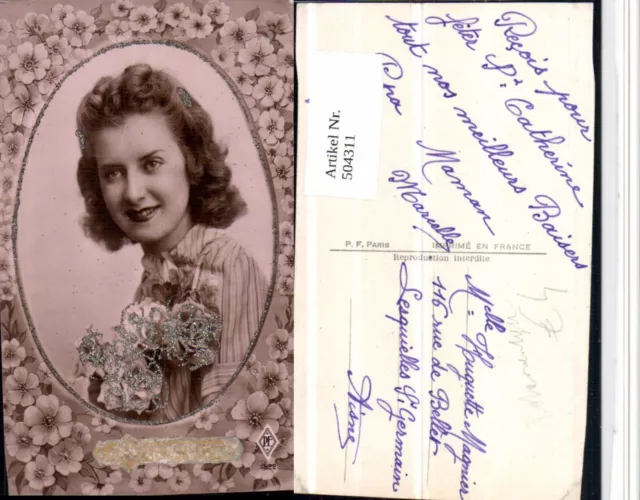 Artikel Nr.
504311
Reçois pour
fêter Ste Catherine
tout nos meilleurs Baisers
Maman
Marcelle
P. F. PARIS
IMPRIMÉ EN FRANCE
Reproduction interdite
Melle Huguette Magnier
116 rue de
Lesquielles St Germain
Aisne
PF